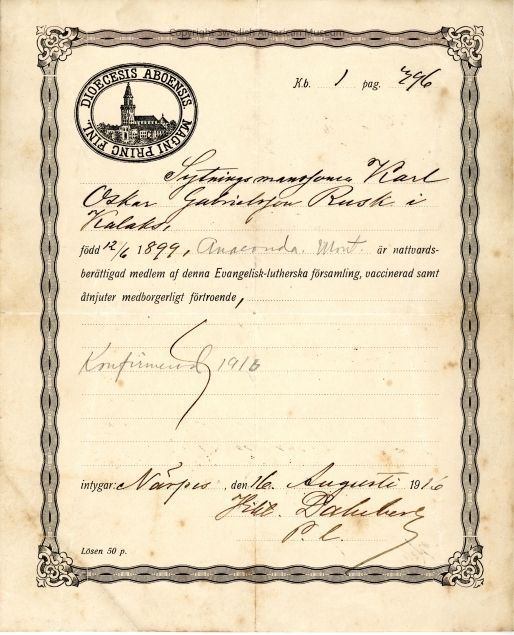 Copyright Swedish American Museum
DIOECESIS ABOENSIS.
MAGNI PRINC. FINL.
K.b. 1 pag. 396
Sytningsmanssonen Karl
Oskar Gabrielsson Rusk i
Kalaks,
född 12/6 1899, Anaconda. Mont. är nattvards-
berättigad medlem af denna Evangelisk-lutherska församling, vaccinerad samt
åtnjuter medborgerligt förtroende,
Konfirmerad 1916
intygar: Närpes, den 16. Augusti 1916
Dahlberg
Lösen 50 p.